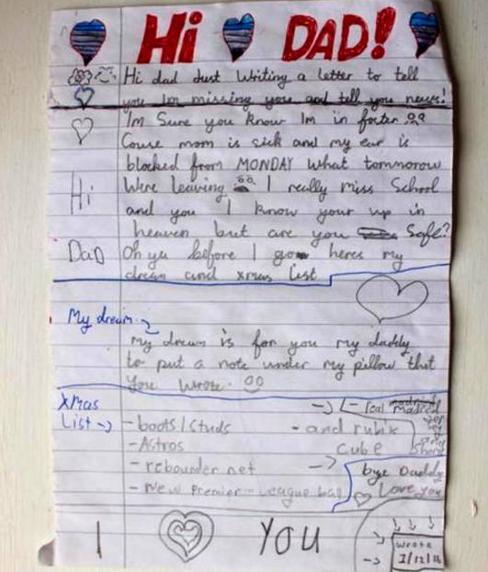 Hi DAD!
Hi dad Just Writing a letter to tell
you Im missing you and tell you news!
Im Sure you know Im in foster
Couse mom is sick and my ear is
blocked from MONDAY What tommorow
Were leaving I really miss School
and you I know your up in
heaven but are you Safe?
Oh ya before I go heres my
dream and xmas list
Hi
DaD
My dream
My dream is for you my daddy
to put a note under my pillow that
you wrote
XMas
List
- boots/studs
- Astros
- rebounder net
- New Premier-League ball
- real madrid
top
shorts
- and rubix
cube
bye Daddy
Love you
I YOU
wrote